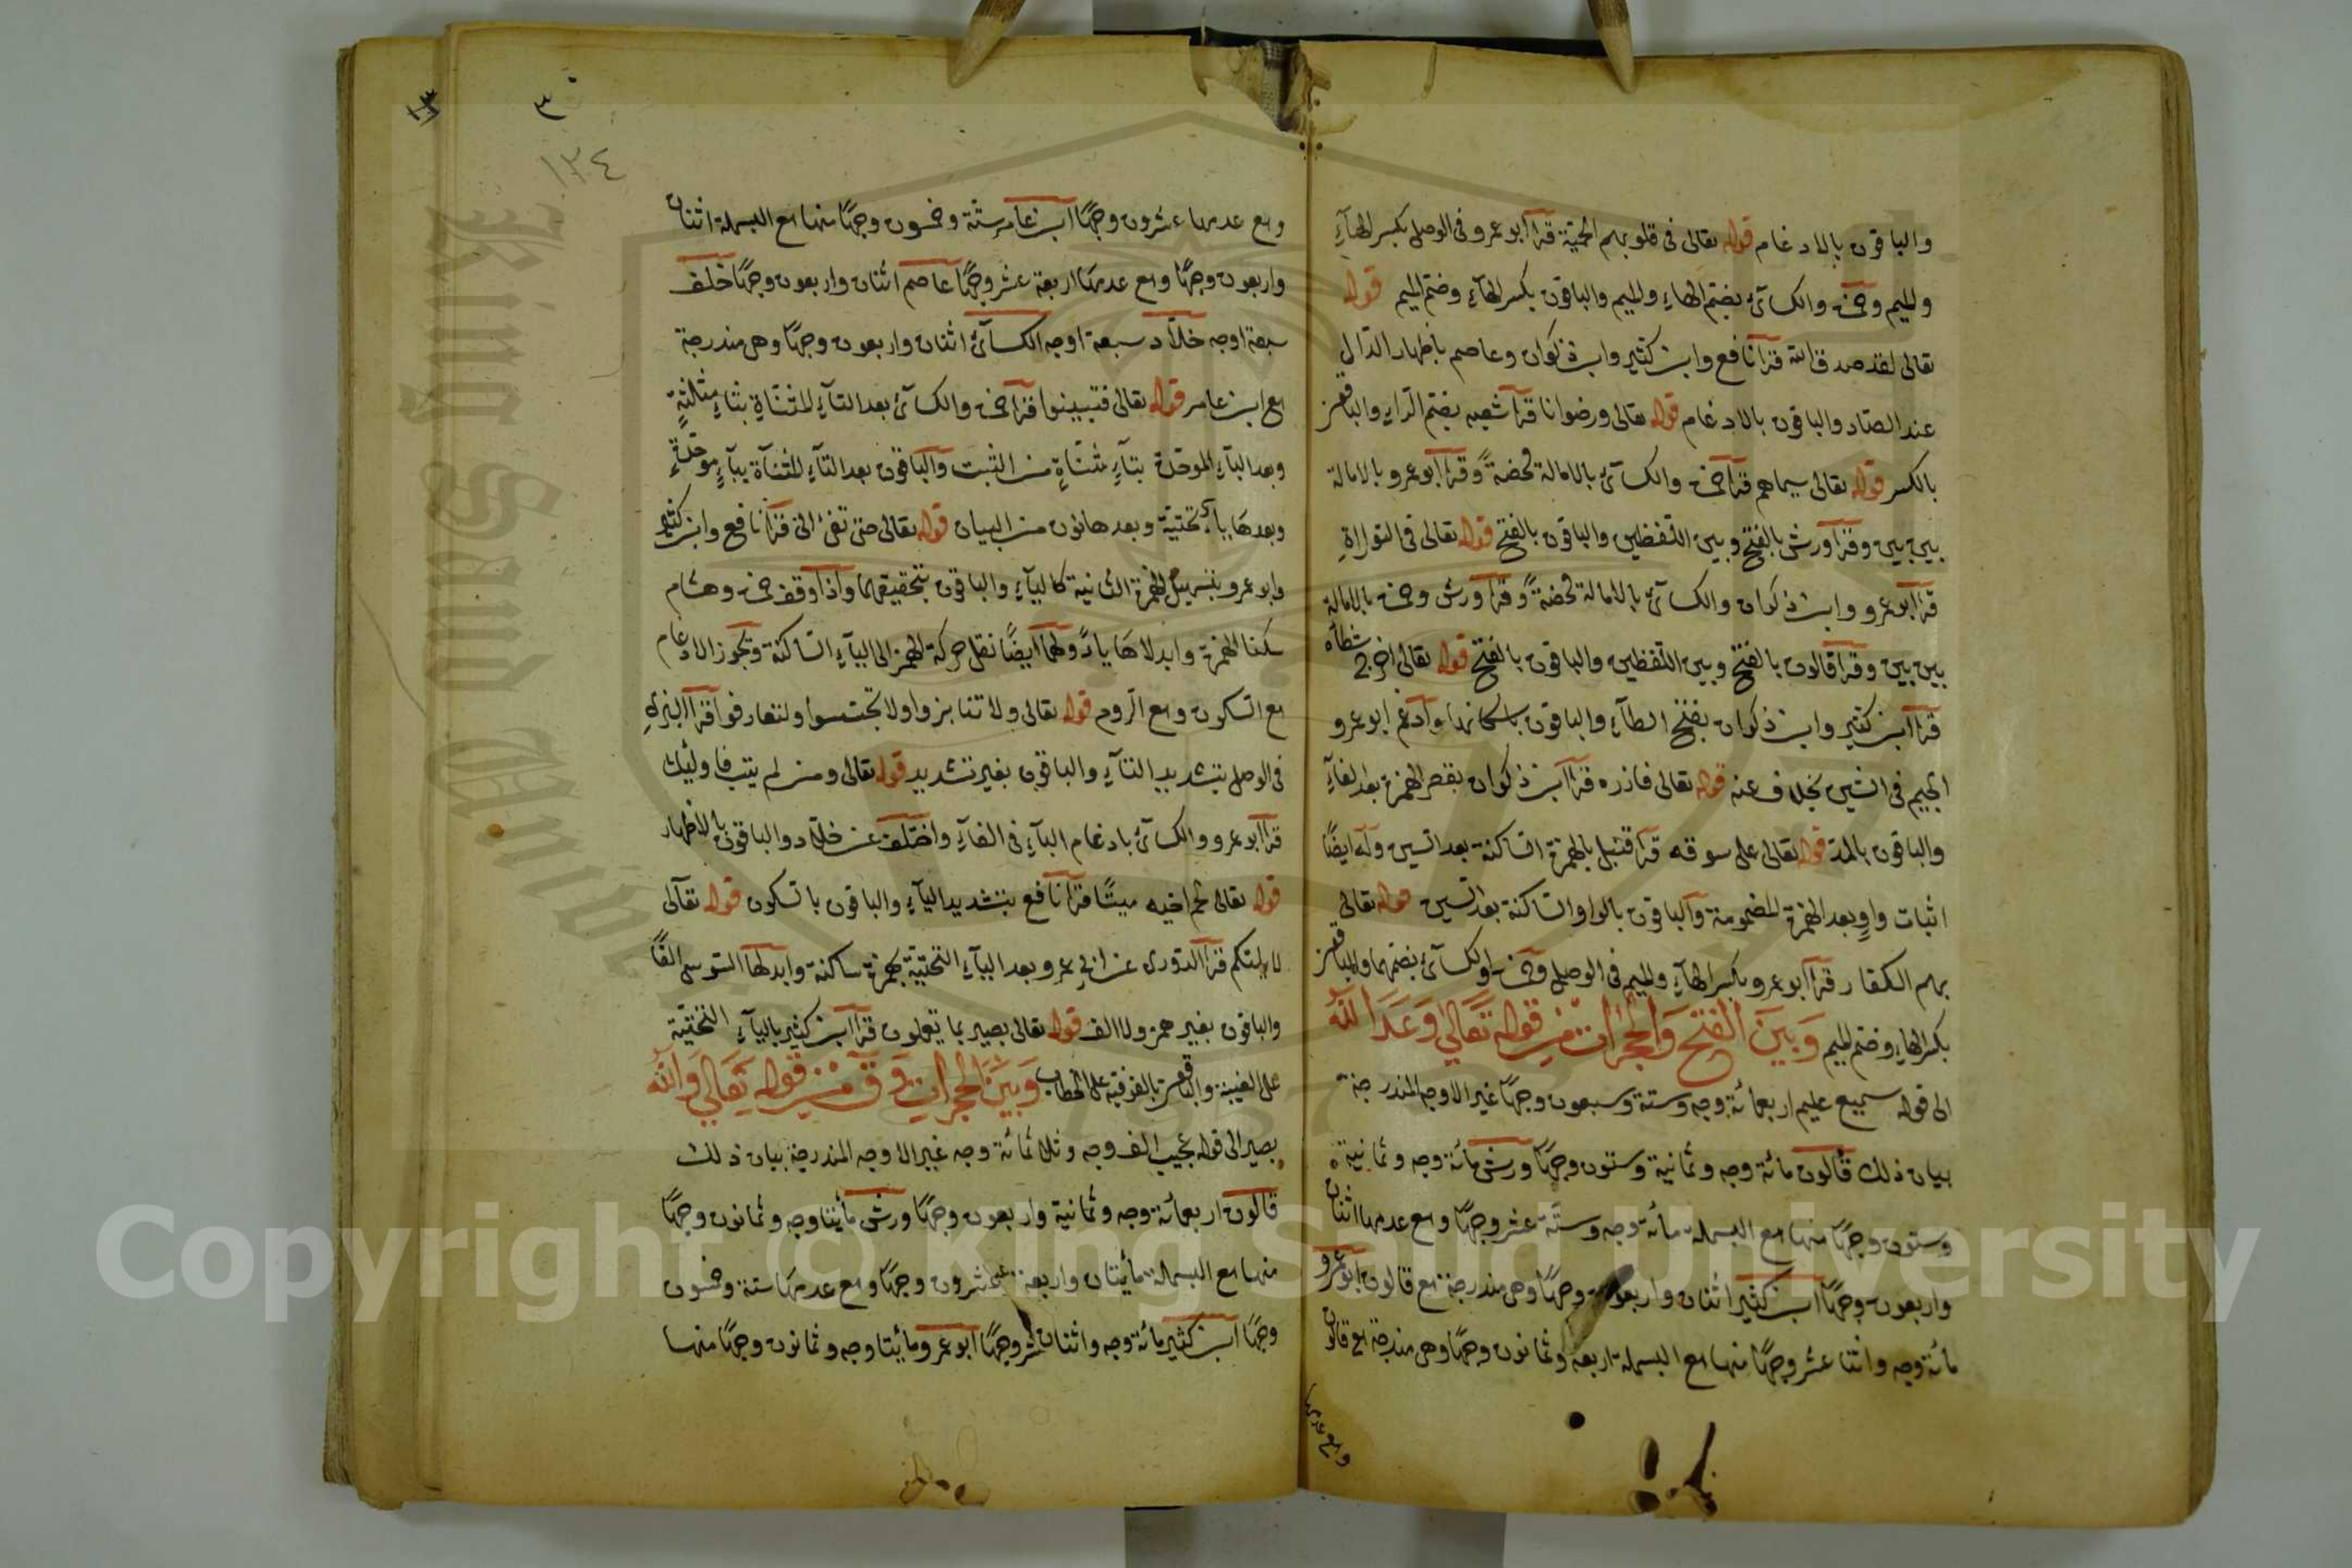 والباقون بالادغام قوله تعالى في قلوبهم الحمية قرا ابو عمرو في الوصل بكسر الهاء
والميم وحمزة والكسائي بضم الهاء والميم والباقون بكسر الهاء وضم الميم قوله
تعالى لقد صدق الله قرا نافع وابن كثير وابن ذكوان وعاصم باظهار الدال
عند الصاد والباقون بالادغام قوله تعالى ورضوانا قرا شعبه بضم الراء والباقون
بالكسر قوله تعالى سيماهم قرا حمزة والكسائي بالامالة محضة وقرا ابو عمرو بالامالة
بين بين وقرا ورش بالفتح وبين اللفظين والباقون بالفتح قوله تعالى في التوراة
قرا ابو عمرو وابن ذكوان والكسائي بالامالة محضة وقرا ورش وحمزة بالامالة
بين بين وقرا قالون بالفتح وبين اللفظين والباقون بالفتح قوله تعالى اخرج شطأه
قرا ابن كثير وابن ذكوان بفتح الطاء والباقون باسكانها وادغم ابو عمرو
الجيم في الشين بخلاف عنه قوله تعالى فازره قرا ابن ذكوان بقصر الهمزة بعد الفاء
والباقون بالمد قوله تعالى على سوقه قرا قنبل بالهمزة الساكنة بعد السين وله ايضا
اثبات واو بعد الهمزة المضمومة والباقون بالواو الساكنة بعد السين قوله تعالى
بهم الكفار قرا ابو عمرو بكسر الهاء والميم في الوصل وحمزة والكسائي بضمهما والباقون
بكسر الهاء وضم الميم وبين الفتح والحجرات من قوله تعالى وعد الله
الى قوله سميع عليم اربعمائة وجه وستة وسبعون وجها غير الاوجه المندرجة
بيان ذلك قالون مائة وجه وثمانية وستون وجها ورش مائة وجه وثمانية
وستون وجها منها مع البسملة مائة وجه وستة عشر وجها ومع عدمها اثنان
واربعون وجها ابن كثير اثنان واربعون وجها وهي مندرجة مع قالون ابو عمرو
مائة وجه واثنا عشر وجها منها مع البسملة اربعة وثمانون وجها وهي مندرجة مع قالون
ومع عدمها
٣٠
١٣٤
ومع عدمها عشرون وجها ابن عامر ستة وخمسون وجها منها مع البسملة اثنان
واربعون وجها ومع عدمها اربعة عشر وجها عاصم اثنان واربعون وجها خلف
سبعة اوجه خلاد سبعة اوجه الكسائي اثنان واربعون وجها وهي مندرجة
مع ابن عامر قوله تعالى فتبينوا قرا حمزة والكسائي بعد التاء المثناة بثاء مثلثة
وبعد الباء الموحدة بتاء مثناة من الثبت والباقون بعد التاء المثناة بباء موحدة
وبعدها ياء تحتية وبعدها نون من البيان قوله تعالى حتى تفئ الى قرا نافع وابن كثير
وابو عمرو بتسهيل الهمزة الثانية كالياء والباقون بتحقيقهما واذا وقف حمزة وهشام
سكنا الهمزة وابدلاها ياء ولهما ايضا نقل حركة الهمز الى الياء الساكنة وتجوز الادغام
مع السكون ومع الروم قوله تعالى ولا تنابزوا ولا تجسسوا ولتعارفوا قرا البزي
في الوصل بتشديد التاء والباقون بغير تشديد قوله تعالى ومن لم يتب فاوليك
قرا ابو عمرو والكسائي بادغام الباء في الفاء واختلف عن خلاد والباقون بالاظهار
قوله تعالى لحم اخيه ميتا قرا نافع بتشديد الياء والباقون بالسكون قوله تعالى
لا يلتكم قرا الدوري عن ابي عمرو بعد الياء التحتية بهمزة ساكنة وابدلها السوسي الفا
والباقون بغير همز ولا الف قوله تعالى بصير بما تعملون قرا ابن كثير بالياء التحتية
على الغيبة والباقون بالفوقية على الخطاب وبين الحجرات وق من قوله تعالى والله
بصير الى قوله عجيب الف وجه وثلاثمائة وجه غير الاوجه المندرجة بيان ذلك
قالون اربعمائة وجه وثمانية واربعون وجها ورش مأيتا وجه وثمانون وجها
منها مع البسملة مأيتان واربعة عشرون وجها ومع عدمها ستة وخمسون
وجها ابن كثير مائة وجه واثنان عشر وجها ابو عمرو مأيتا وجه وثمانون وجها منها
King Saud University
1957
Copyright © King Saud University